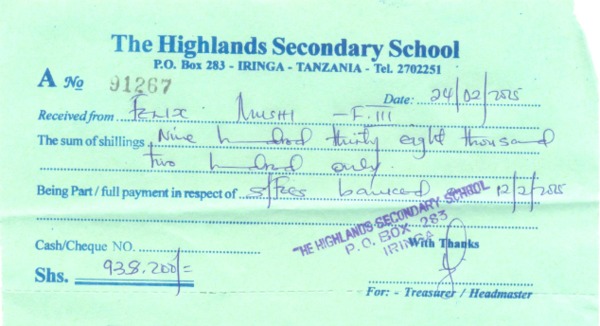 The Highlands Secondary School
P.O. Box 283 - IRINGA - TANZANIA - Tel. 2702251
A No 91267
Date: 24/02/2025
Received from FELIX MUSHI - F.III
The sum of shillings Nine hundred thirty eight thousand
two hundred only.
Being Part / full payment in respect of s/fees 12/2/2025
THE HIGHLANDS SECONDARY SCHOOL
P.O. BOX 283
IRINGA
Cash/Cheque NO.
With Thanks
Shs. 938.200/=
For: - Treasurer / Headmaster